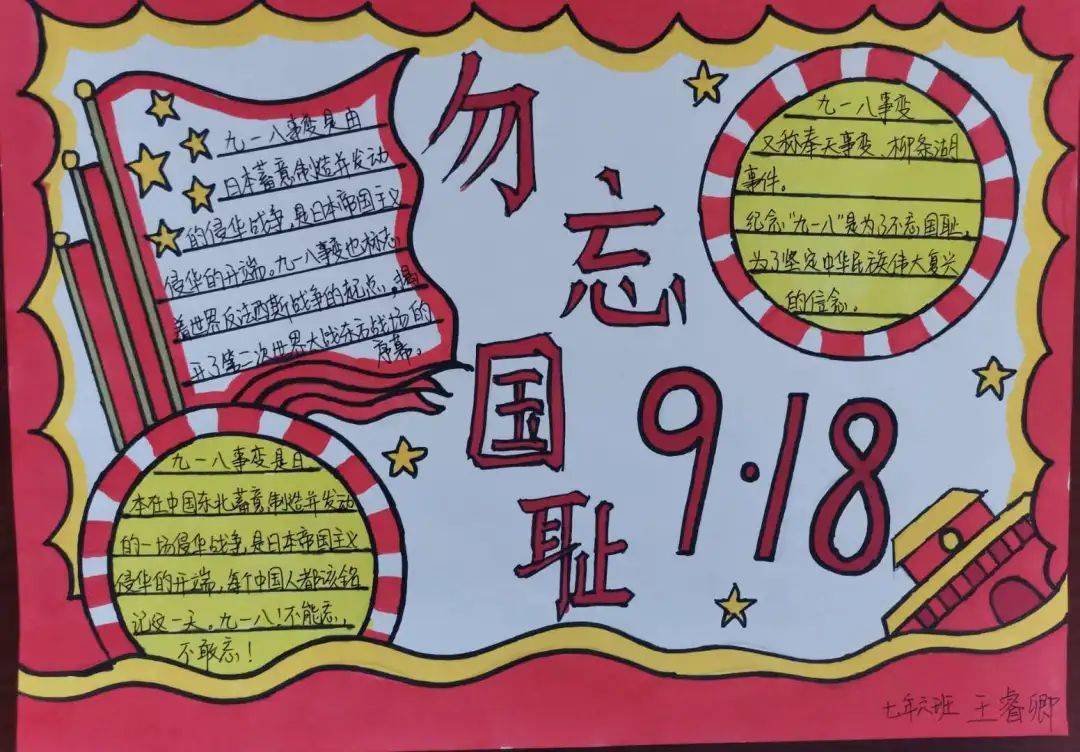 勿忘国耻
9·18
九一八事变是由
日本蓄意制造并发动
的侵华战争,是日本帝国主义
侵华的开端。九一八事变也标志
着世界反法西斯战争的起点,揭
开了第二次世界大战东方战场的
序幕。
九一八事变
又称奉天事变、柳条湖
事件。
纪念“九一八”是为了不忘国耻,
为了坚定中华民族伟大复兴
的信念。
九一八事变是日
本在中国东北蓄意制造并发动
的一场侵华战争,是日本帝国主义
侵华的开端,每个中国人都该铭
记这一天。九一八!不能忘,
不敢忘!
七年六班 王睿卿